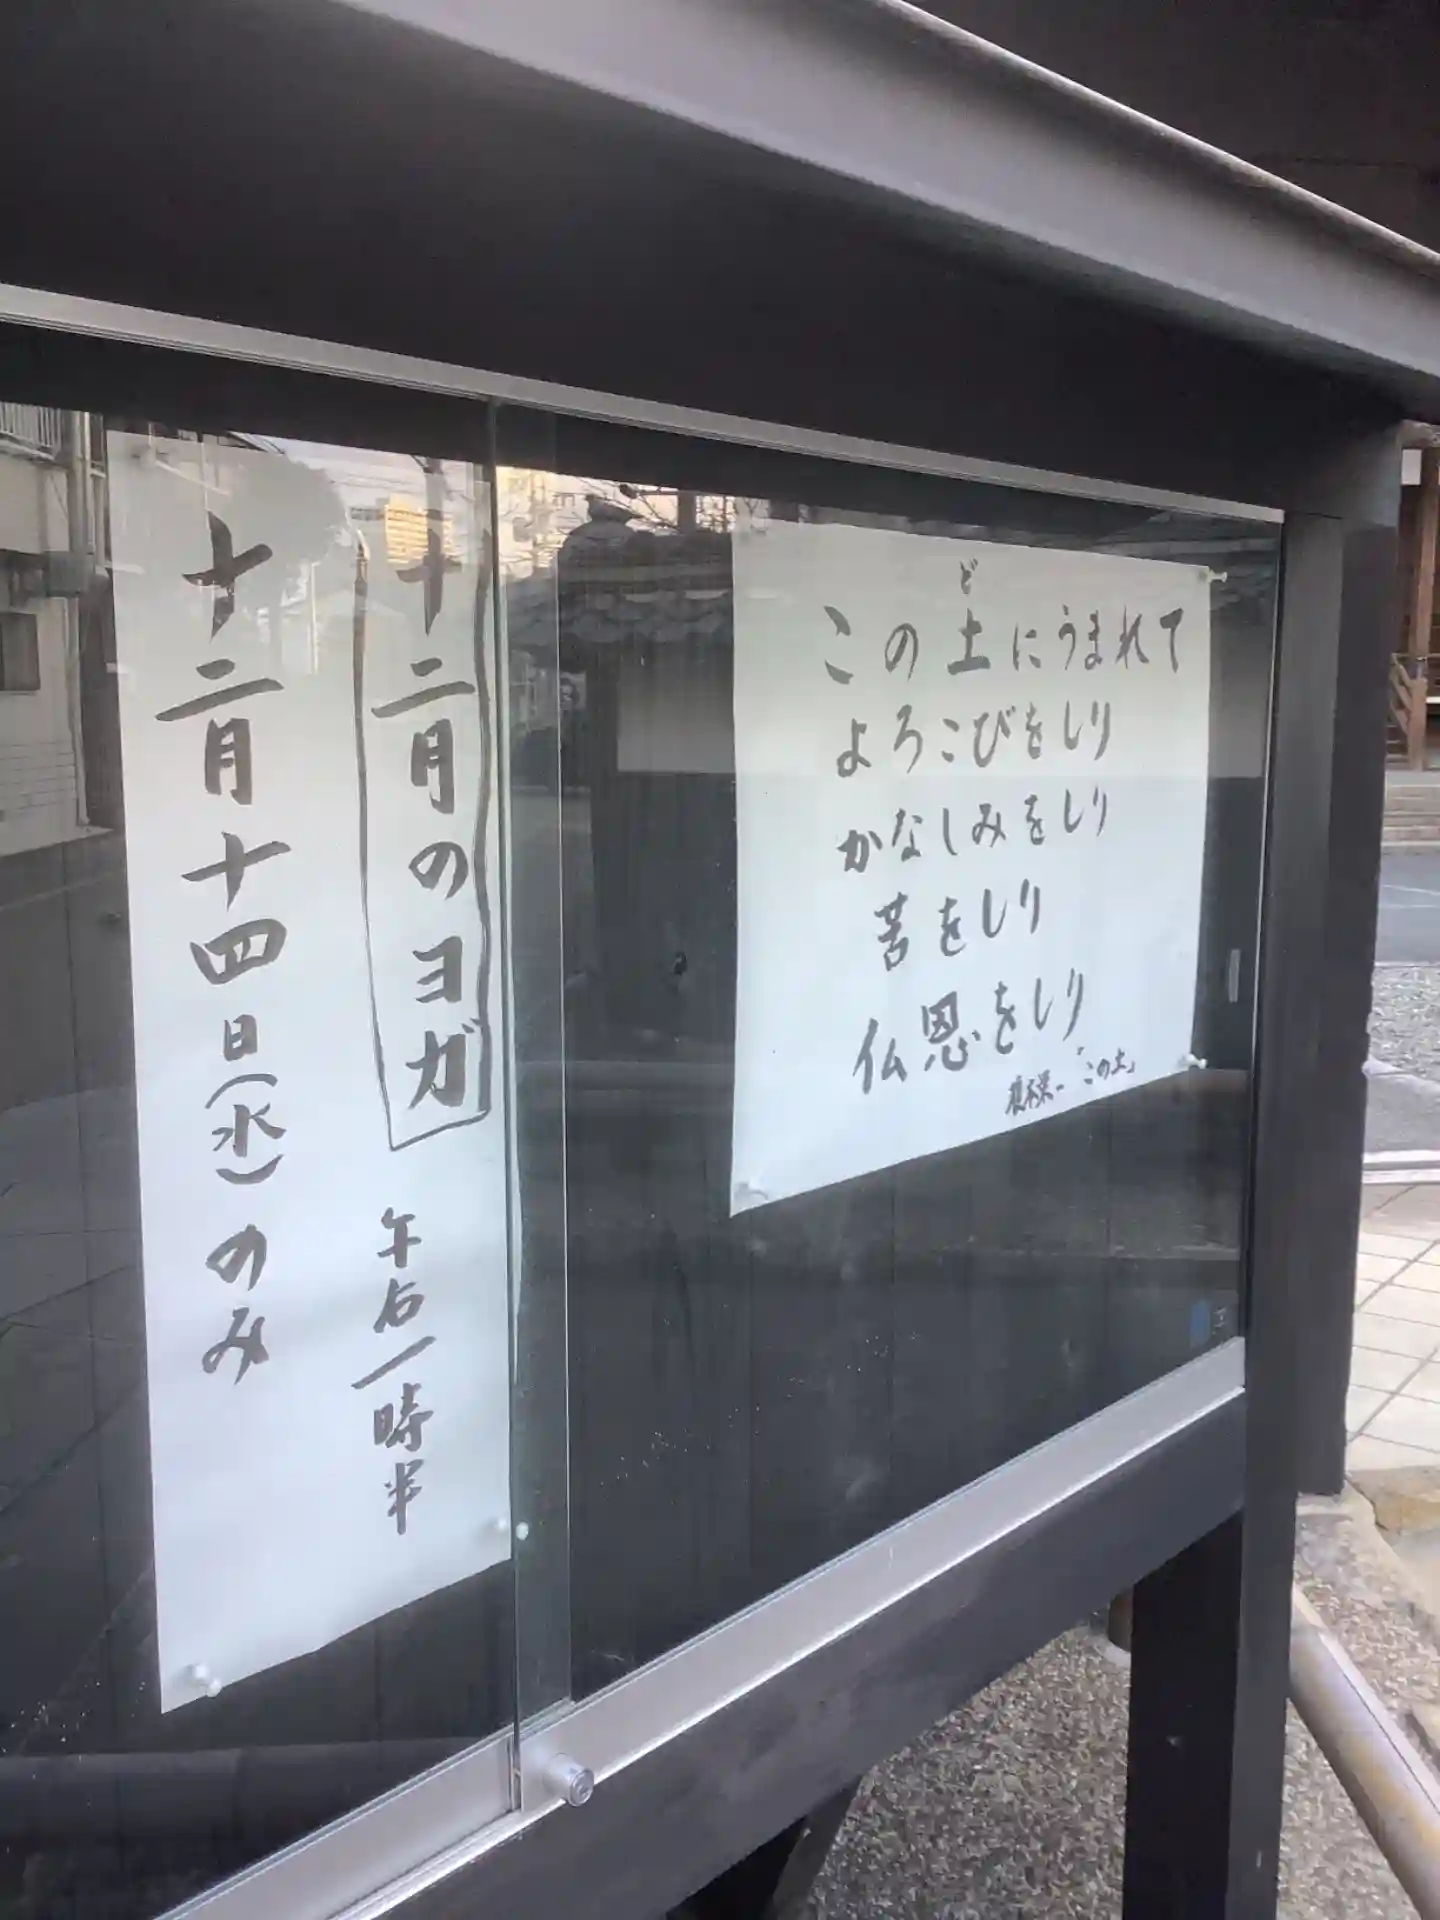 この土にうまれて
ど
よろこびをしり
かなしみをしり
苦をしり
仏恩をしり
榎本栄一「この土」
十二月のヨガ 午后一時半
十二月十四日(水)のみ